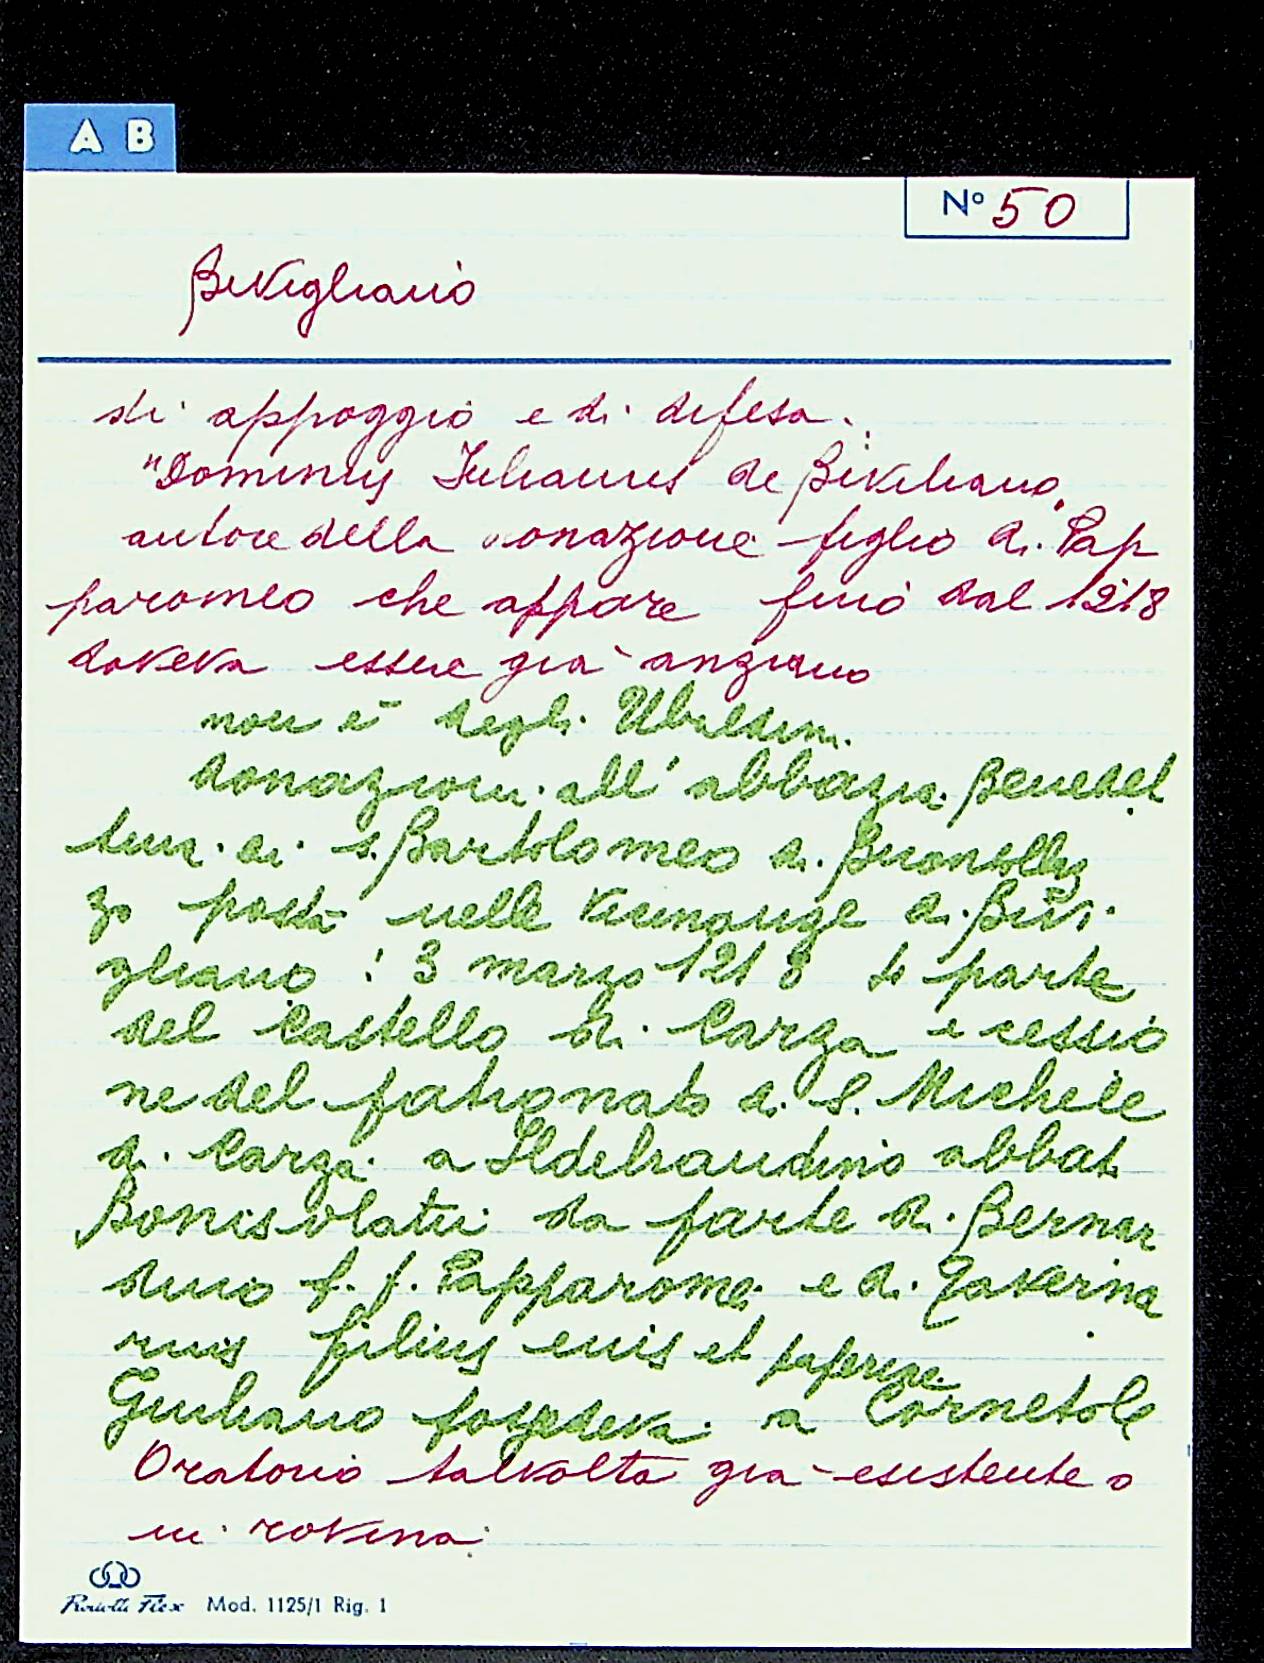 A B
Nº 50
Bivigliano
di appoggio e di difesa.
"Dominus Iulianus de Biviliano"
autore della donazione figlio di Pap
paromeo che appare fino dal 1218
doveva essere già anziano
non è degli Ubaldini
donazioni all'abbazia Benedet
tina di S. Bartolomeo di Buonsollaz
zo posta nelle vicinanze di Bivi
gliano : 3 marzo 1218 di parte
del Castello di Carza e cessio
ne del patronato di S. Michele
di Carza a Ildebrandino abbat
Bonisolatii da parte di Bernar
dino f. f. Papparomei e di
filius eius et
Giuliano possedeva a Cornetole
Oratorio talvolta già esistente o
in rovina
Mod. 1125/1 Rig. 1